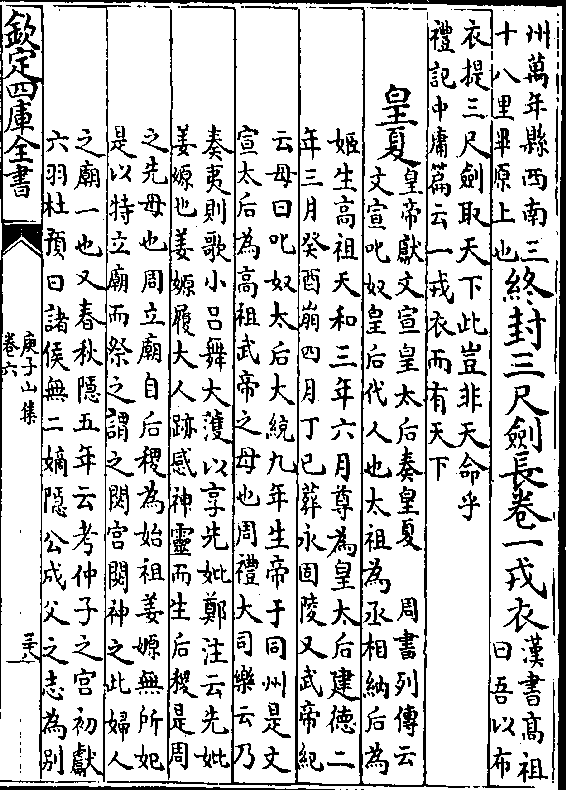 州萬年縣西南三
十八里畢原上也
終封三尺劍長卷一戎衣
漢書高祖
曰吾以布
衣提三尺劍取天下此豈非天命乎
禮記中庸篇云一戎衣而有天下
皇夏
皇帝獻文宣皇太后奏皇夏　周書列傳云
文宣叱奴皇后代人也太祖為丞相納后為
姬生高祖天和三年六月尊為皇太后建德二
年三月癸酉崩四月丁巳葬永固陵又武帝紀
云母曰叱奴太后大統九年生帝于同州是文
宣太后為高祖武帝之母也周禮大司樂云乃
奏夷則歌小呂舞大濩以享先妣鄭注云先妣
姜嫄也姜嫄履大人跡感神靈而生后稷是周
之先母也周立廟自后稷為始祖姜嫄無所妃
是以特立廟而祭之謂之閟宮閟神之此婦人
之廟一也又春秋隱五年云考仲子之宮初獻
六羽杜預曰諸侯無二嫡隱公成父之志為別
欽定四庫全書
庾子山集
卷六